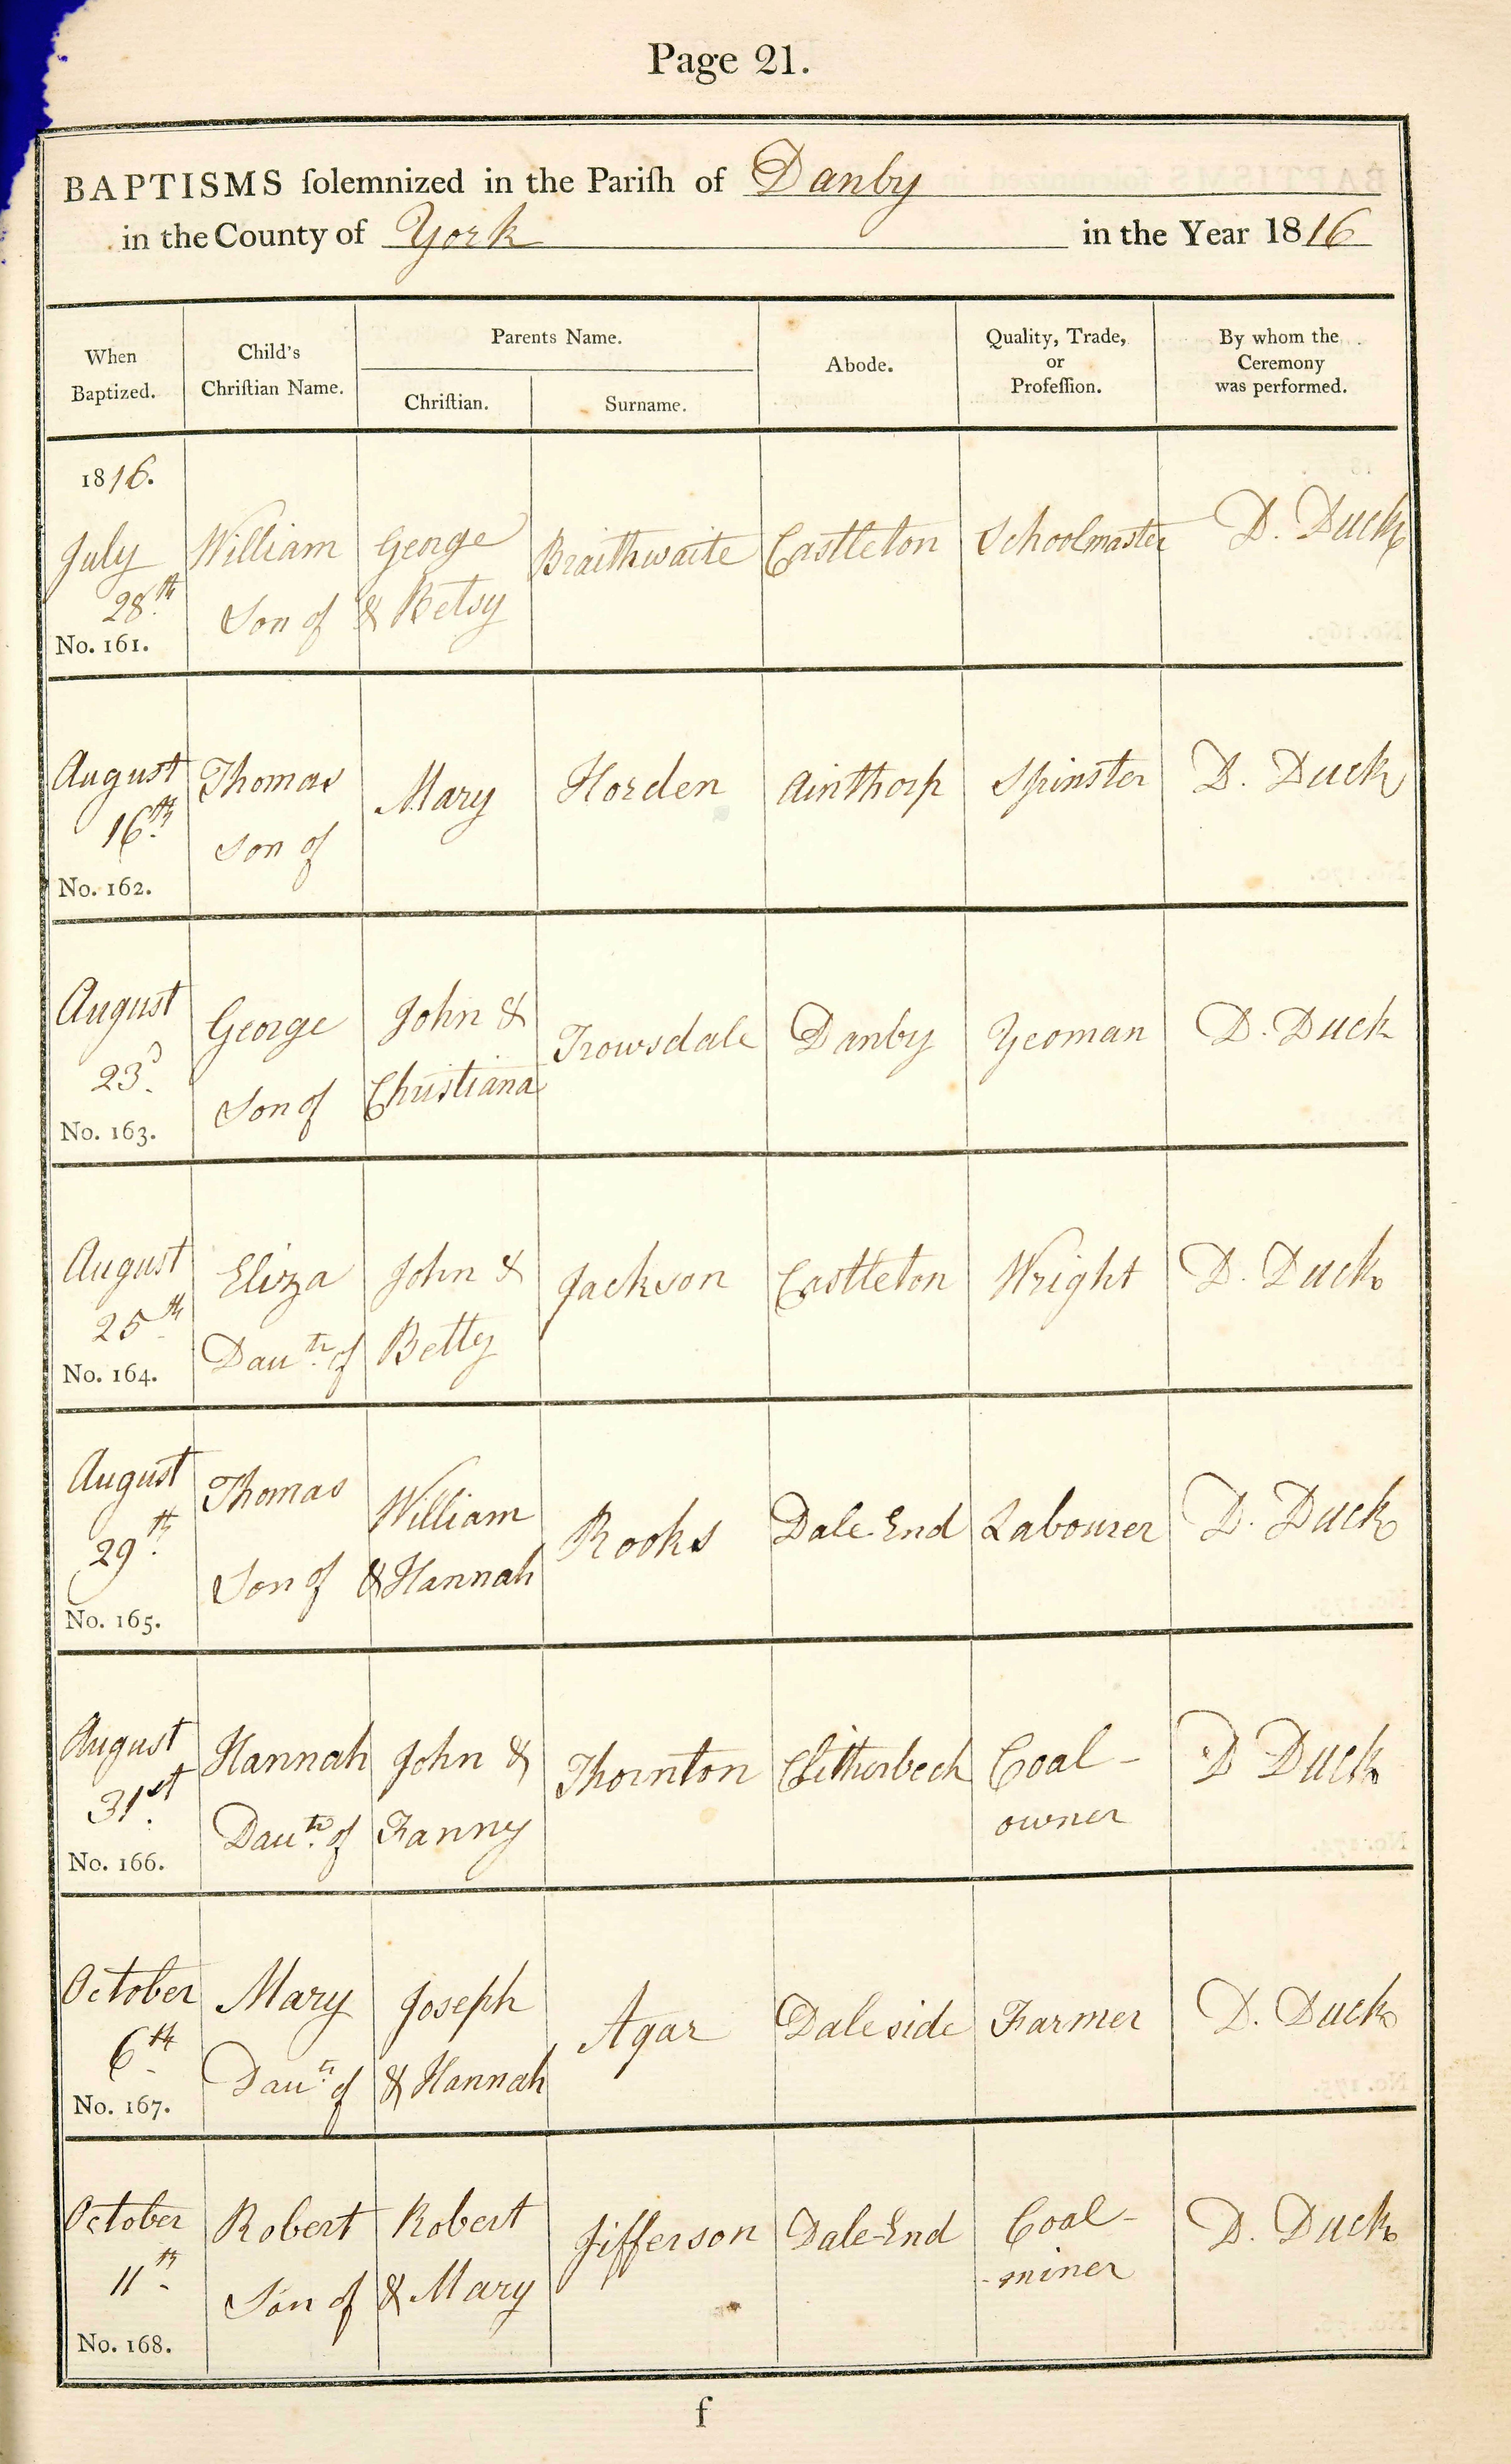 Page 21.
BAPTISMS ſolemnized in the Pariſh of Danby
in the County of York in the Year 1816
When Baptized.
Child's Chriſtian Name.
Parents Name.
Chriſtian.
Surname.
Abode.
Quality, Trade, or Profeſſion.
By whom the Ceremony was performed.
1816.
July William George Braithwaite Castleton Schoolmaster D. Duck
28th Son of & Betsy
No. 161.
August Thomas Mary Horden Ainthorp Spinster D. Duck
16th Son of
No. 162.
August George John & Trowsdale Danby Yeoman D. Duck
23d Son of Christiana
No. 163.
August Eliza John & Jackson Castleton Wright D. Duck
25th Dautr of Betty
No. 164.
August Thomas William Rooks Dale End Labourer D. Duck
29th Son of & Hannah
No. 165.
August Hannah John & Thornton Clitherbeck Coal- D Duck
31st Dautr of Fanny owner
No. 166.
October Mary Joseph Agar Daleside Farmer D. Duck
6th Dautr of & Hannah
No. 167.
October Robert Robert Jifferson Dale-End Coal- D. Duck
11th Son of & Mary -miner
No. 168.
f